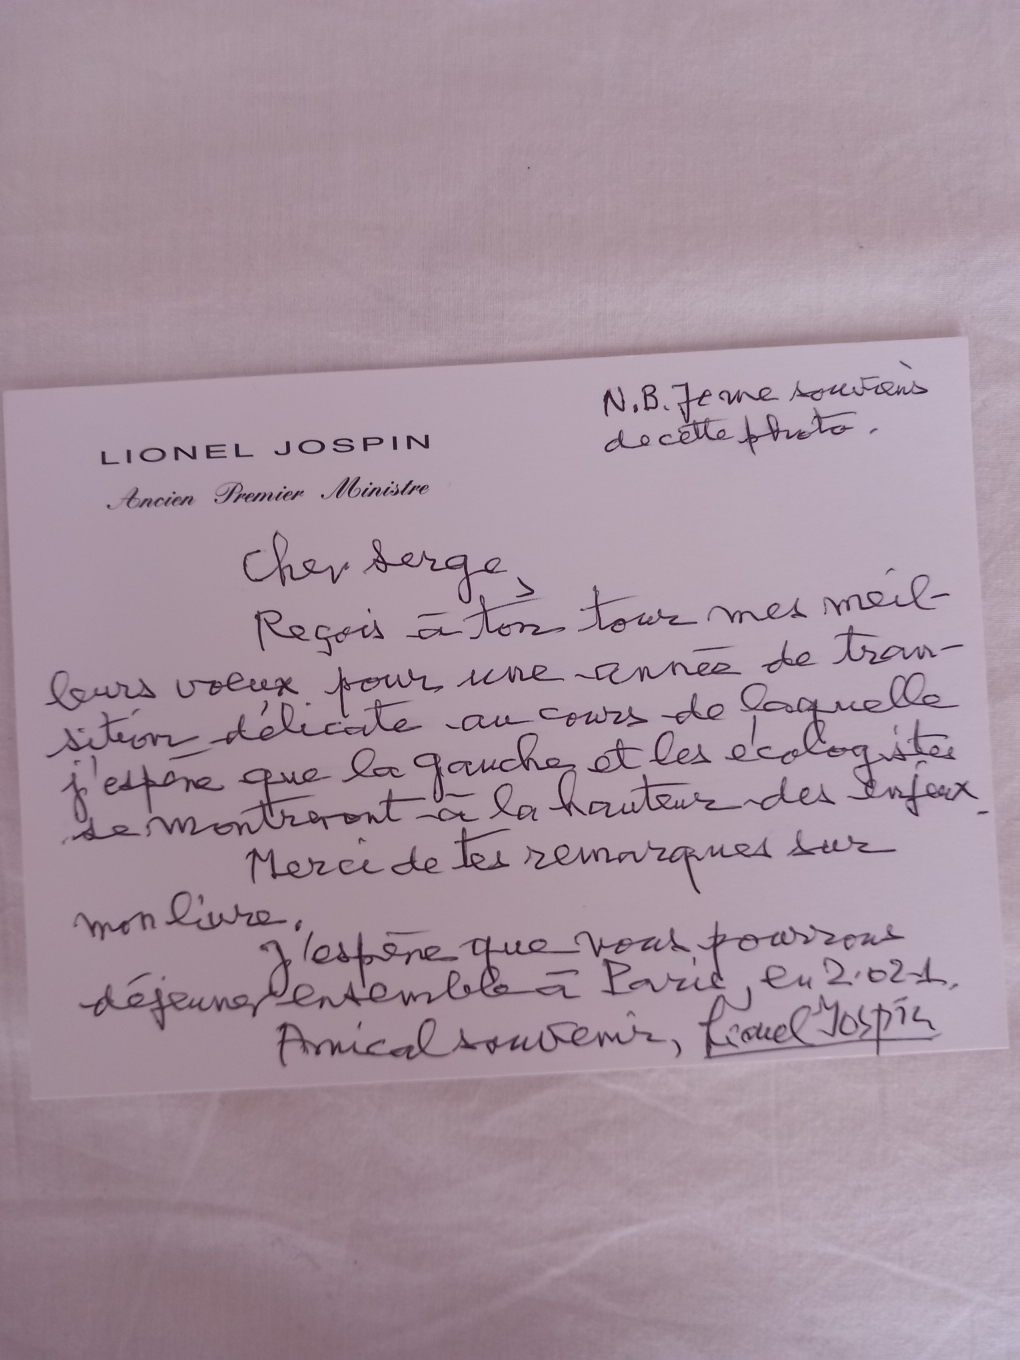 N.B. Je me souviens
de cette photo.
LIONEL JOSPIN
Ancien Premier Ministre
Cher Serge,
Reçois à ton tour mes meil-
leurs vœux pour une année de tran-
sition délicate au cours de laquelle
j'espère que la gauche et les écologistes
se montreront à la hauteur des enjeux.
Merci de tes remarques sur
mon livre.
J'espère que nous pourrons
déjeuner ensemble à Paris, en 2021.
Amical souvenir, Lionel Jospin